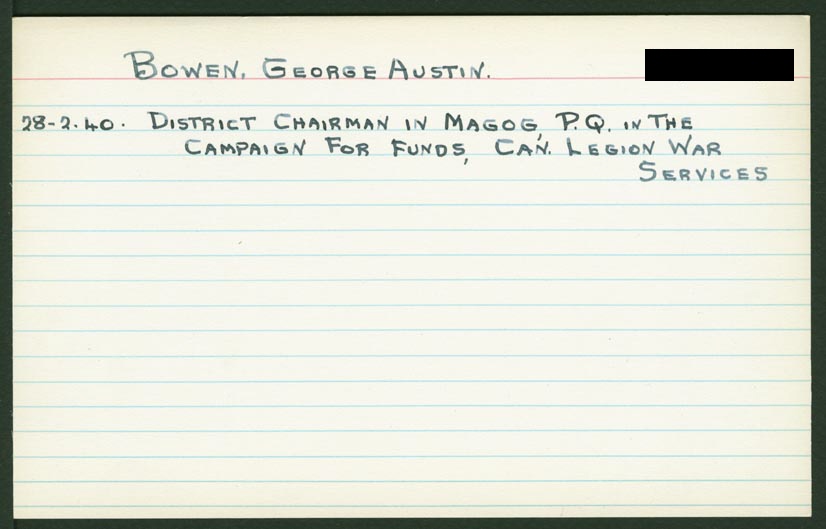 BOWEN, GEORGE AUSTIN.
28-2-40. DISTRICT CHAIRMAN IN MAGOG, P.Q. IN THE
CAMPAIGN FOR FUNDS, CAN. LEGION WAR
SERVICES